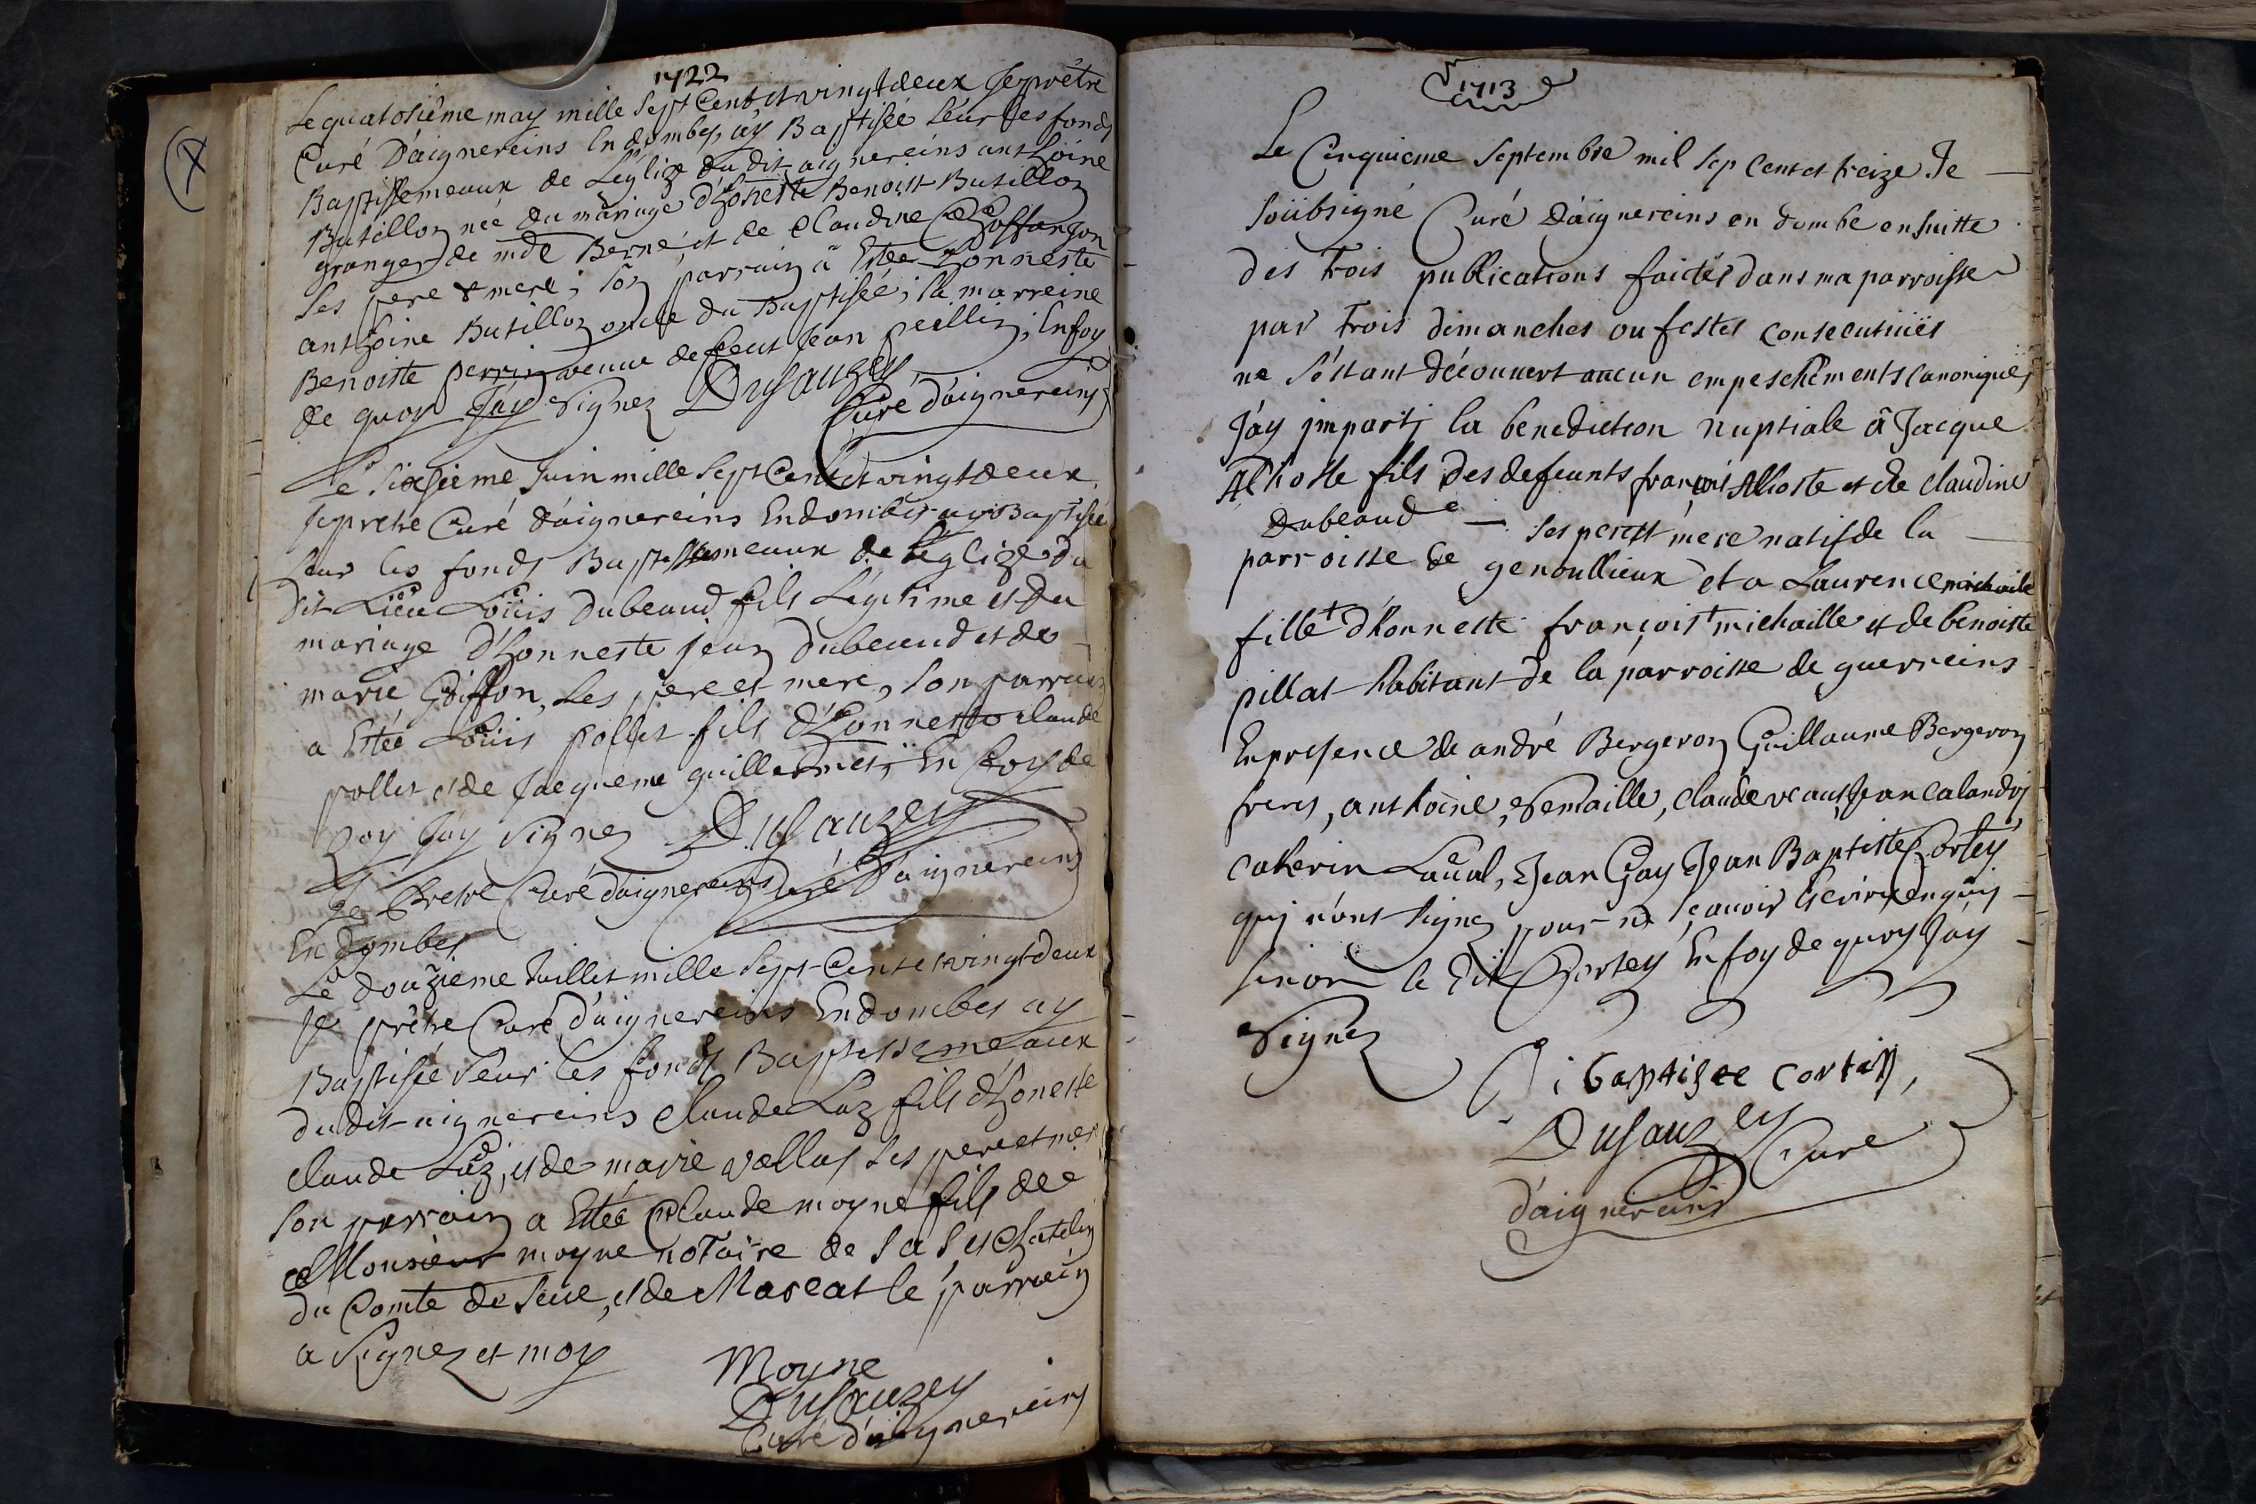 1722
Le quatosieme may mille Sept Cent et vingt deux Je prêtre
Curé D'aignereins En dombes, ay Baptisée seur les fonds
Baptissemeaux de L'eglize du dit aignereins anthoine
Butillon née du mariage d'honeste Benoist Butillon
granger de mde Berne, et de Claudine Choffanjon
ses pere & mere; son parrain a Estée honneste
anthoine Butillon oncle du Baptisée; la marreine
Benoiste perrin veuve de feut Jean peillin; En foy
de quoy J'ay Signez Dusauzey
Curé d'aignereins
Le Sixsieme Juin mille Sept Cent et vingt deux
Je pretre Curé d'aignereins En dombes ay Baptisée
seur les fonds Baptissemeaux de L'eglize du
dit Lieu Loüis Dubeaud fils Légitime et du
mariage d'honneste jean Dubeaud et de
marie Goiffon, ses pere et mere, son parrain
a Estée Loüis pollet fils d'honneste claude
pollet et de Jacqueme guillermet; En foy de
quoy J'ay Signez Dusauzey
Je Pretre Curé d'aignereins Curé d'aignereins
En dombes
Le douzieme Juillet mille Sept Cent et vingt deux
Je prêtre Curé d'aignereins En dombes ay
Baptisée seur les fonds Baptissemeaux
du dit aignereins claude Luz fils d'honeste
claude Luz, et de marie vallas ses pere et mere
son parrain a Estée Claude moyne fils de
Monsieur moyne notaire de S A S et Chatelin
du Comte de seve, et de Mareat le parrain
a Signez et moy
Moyne
Dusauzey
Curé d'aignereins
1713
Le Cinquieme Septembre mil sep cent et treize Je
soübsigné Curé d'aignereins en dombe ensuitte
des trois publications faictes dans ma parroisse
par trois dimanches ou festes consecutiües
ne s'éstant découuert aucun empeschements canoniques,
J'ay imparti la benediction nuptiale à Jacque
Alhoste fils des defeunts françois Alhoste et de claudine
Dubeaude ses pere et mere natif de la
parroisse de genoullieux et a Laurence michaille
fille d'honneste françois michaille et de benoiste
pillat habitant de la parroisse de guerreins
En presence de andré Bergeron Guillaume Bergeron
freres, anthoine, Semaille, claude veaux, Jean calandry
caterin Laüal, Jean Gay Jean Baptiste Cortey
qui n'ont signez pour ne sçauoir escrire enquis
sinon le dit Cortey En foy de quoy J'ay
Signez
i baptizte cortey,
Dusauzey
Curé
d'aignereins